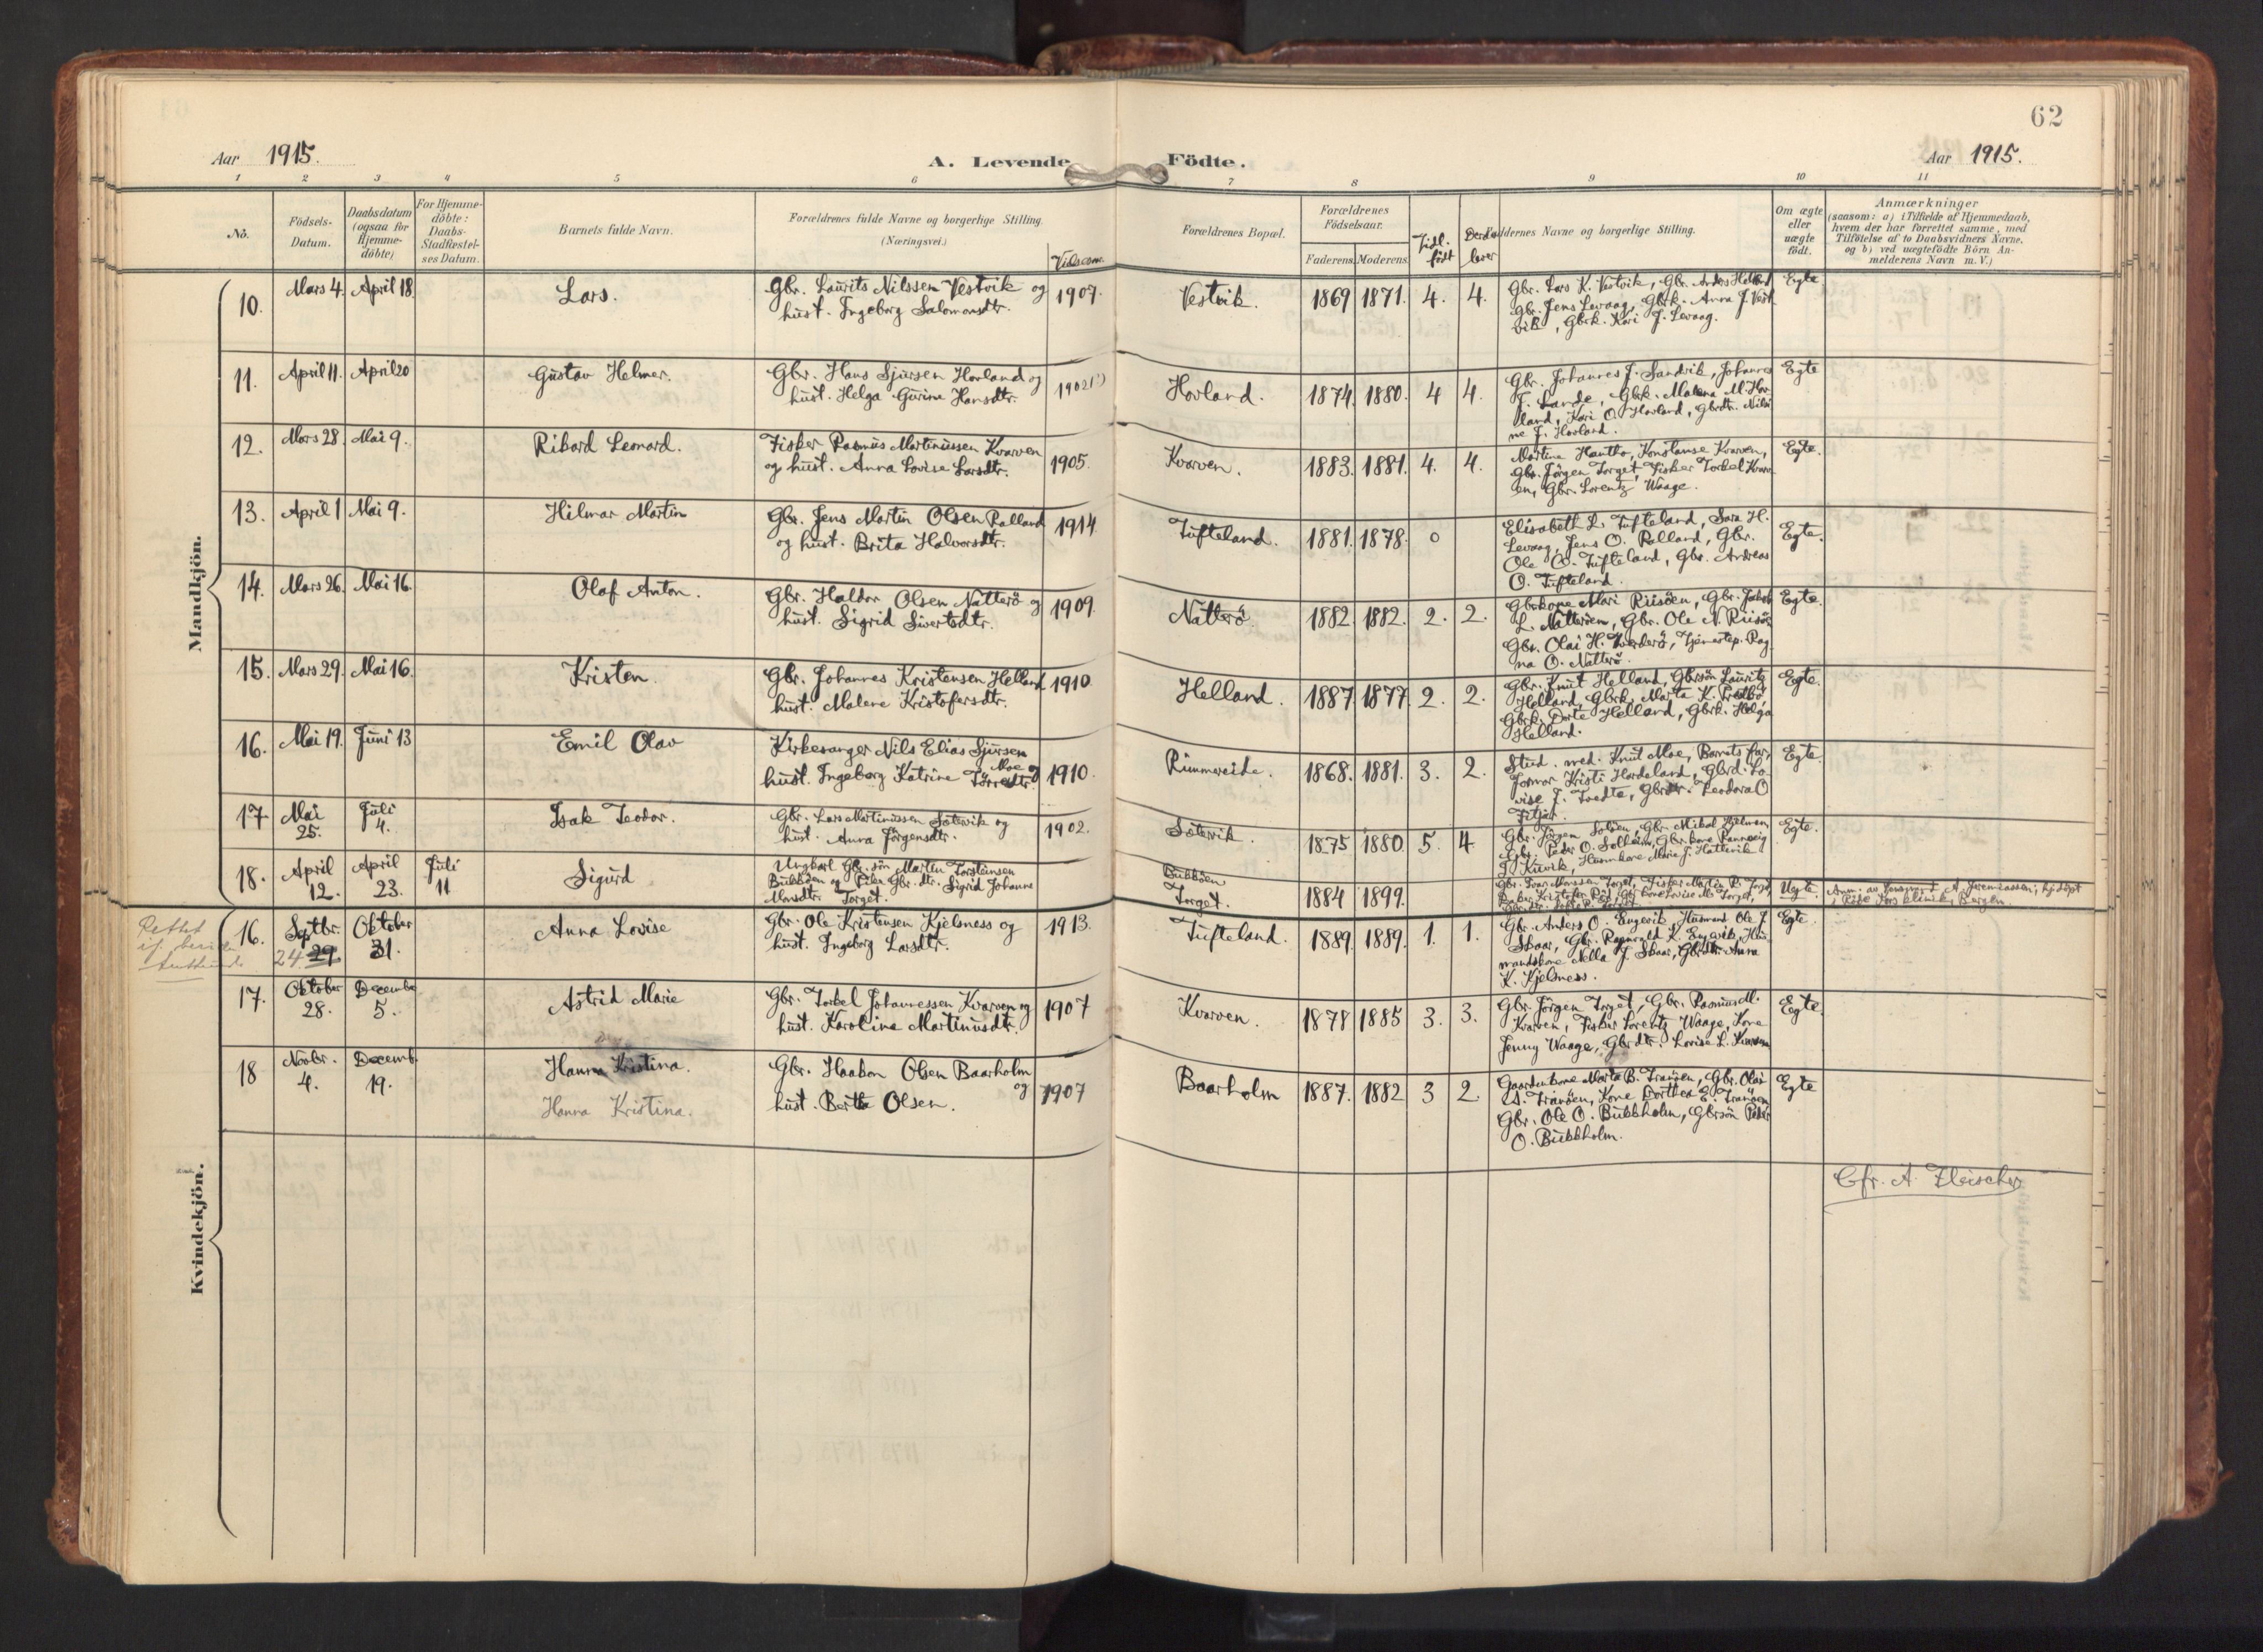 62
Aar 1915.
A. Levende Födte.
Aar 1915.
1 2 3 4 5 6 7 8 9 10 11
No.
Födsels-Datum.
Daabsdatum (ogsaa for Hjemme-döbte)
For Hjemme-döbte: Daabs-Stadfæstel-ses Datum.
Barnets fulde Navn.
Forældrenes fulde Navne og borgerlige Stilling.
(Næringsvei.)
Forældrenes Bopæl.
Forældrenes Födselsaar.
Faderens. Moderens.
Tidl. født
Faddernes Navne og borgerlige Stilling.
Om ægte eller uægte födt.
Anmærkninger
(saasom: a) i Tilfælde af Hjemmedaab,
hvem der har forrettet samme, med
Tilföielse af to Daabsvidners Navne,
og b) ved uægtefödte Börn An-
melderens Navn m. V.)
Mandkjön.
10. Mars 4. April 18. Lars. Gbr. Laurits Nilssen Vestvik og 1907. Vestvik. 1869 1871. 4. 4. Gbr. Lars K. Vestvik, Gbr. Anders Helland Egte
hust. Ingeborg Salomonsdtr. Gbr. Jens Levaag, Gbrk. Anna J. Vest
vik, Gbrk. Kari J. Levaag.
11. April 11. April 20 Gustav Helmer. Gbr. Hans Sjursen Hovland og 1902 Hovland. 1874. 1880. 4 4. Gbr. Johannes J. Sandvik, Johannes Egte
hust. Helga Gurine Hansdtr. J. Lande, Gbrk. Malena M. Hov
land, Kari O. Hovland, Gbrdtr. Nilsi
ne J. Hovland.
12. Mars 28. Mai 9. Rikard Leonard. Fisker Rasmus Martinussen Kvarven 1905. Kvarven. 1883. 1881. 4. 4. Martine Hautho, Konstanse Kvarven, Egte.
og hust. Anna Lovise Larsdtr. Gbr. Jörgen Torget, Fisker Torkel Kvarv
en, Gbr. Lorentz Waage.
13. April 1 Mai 9. Hilmar Martin Gbr. Jens Martin Olsen Rolland 1914 Tufteland. 1881. 1878. 0 Elisabeth L. Tufteland, Sara H. Egte.
og hust. Brita Halvorsdtr. Levaag, Jens O. Rolland, Gbr.
Ole O. Tufteland, Gbr. Andreas
O. Tufteland.
14. Mars 26. Mai 16. Olaf Anton. Gbr. Haldor Olsen Natterö og 1909. Natterö. 1882. 1882. 2. 2. Gbrkone Mari Riisöen, Gbr. Jakob Egte.
hust. Sigrid Sivertsdtr. L. Natteröen, Gbr. Ole N. Riisöen
Gbr. Olai H.
na O. Natterö.
15. Mars 29. Mai 16. Kristen. Gbr. Johannes Kristensen Helland 1910. Helland. 1887. 1877. 2. 2. Gbr. Knut Helland, Gbrsön Lauritz Egte.
hust. Malene Kristofersdtr. Helland, Gbrk. Marta K.
Gbrk. Dorte Helland, Gbrk. Helga
Helland.
16. Mai 19. Juni 13 Emil Olav Kirkesanger Nils Elias Sjursen 1910. Rimmereide. 1868. 1881. 3. 2. Stud. med. Knut Moe, Barnets far, Egte.
Moe og
hust. Ingeborg Katrine farmor Kristi Hordeland, Gbrd. Lo
vise J. Tvedte,
Fitjar.
17 Mai 25. Juli 4. Isak Teodor. Gbr. Lars Martinussen Sætervik og 1902. Sætervik. 1875 1880 5. 4. Gbr. Jörgen Sölöen, Gbr. Mikal Hjelmen, Egte.
hust. Anna Jörgensdtr. Gbr. Peder O. Solheim, Gbrkone Ranneveig
Marie J. Hattevik
18. April 12. April 23. Juli 11 Sigurd Ungkarl Gbr. sön Martin Torsteinsen Bukköen 1884 1899. Uegte.
Bukköen og Pike Gbr. dtr. Sigrid Johanne Torget.
Monsdtr. Torget.
Kvindekjön.
Rettet
16. Septbr. 24 29 Oktober 31. Anna Lovise Gbr. Ole Kristensen Kjelsness og 1913. Tufteland. 1889. 1889. 1. 1. Gbr. Anders O. Engevik, Husmand Ole J. Egte.
hust. Ingeborg Larsdtr. Skaar, Gbr. Ragnvald K. Engevik, Hus
mandskone Nella J. Skaar, Gbrdtr. Anna
K. Kjelsness.
17. Oktober 28. Decembr 5. Astrid Marie Gbr. Torkel Johannessen Kvarven og 1907 Kvarven. 1878 1885 3. 3. Gbr. Jörgen Torget, Gbr. Rasmus M. Egte.
hust. Karoline Martinusdtr. Kvarven, Fisker Lorentz Waage, Kone
Jenny Waage, Gbrdtr. Lovise L. Kvarven
18 Novbr. 4. Decemb. 19. Hanna Kristina. Gbr. Haakon Olsen Baarholm og 1907 Baarholm 1887. 1882 3 2. Gaardmkone Marta B. Tranöen, Gbr. Olai Egte
Hanna Kristina. hust. Berta Olsen. Tranöen, Kone Dorthea E. Tranöen
Gbr. Ole O. Bukkholm, Gbrsön Peder
O. Bukkholm.
Cfr. A. Fleischer